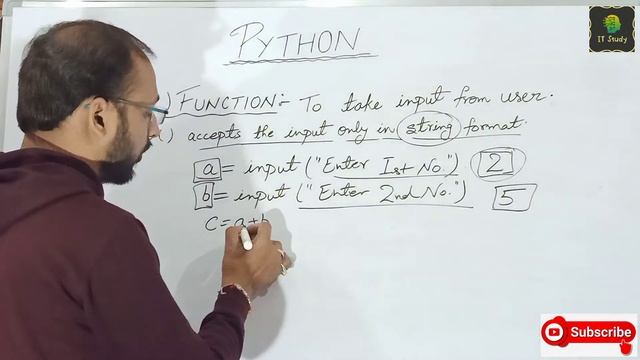 IT Study
PYTHON
) FUNCTION:- To take input from user.
) accepts the input only in string format.
a = input ("Enter Ist No.") 2
b = input ("Enter 2nd No.") 5
c = a+b
Subscribe